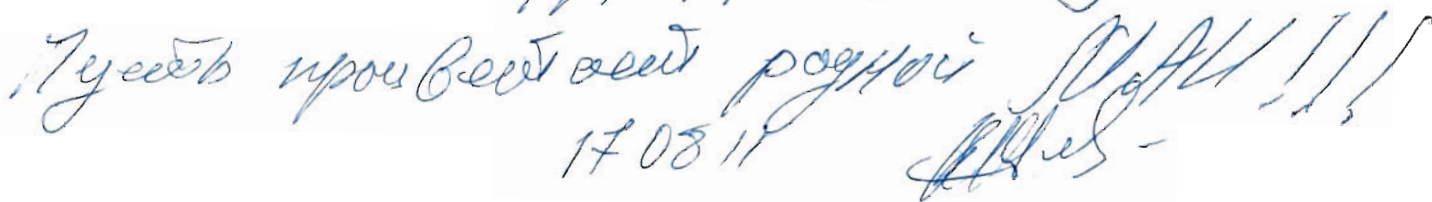 Пусть процветает родной МАИ!!!
17 08 11